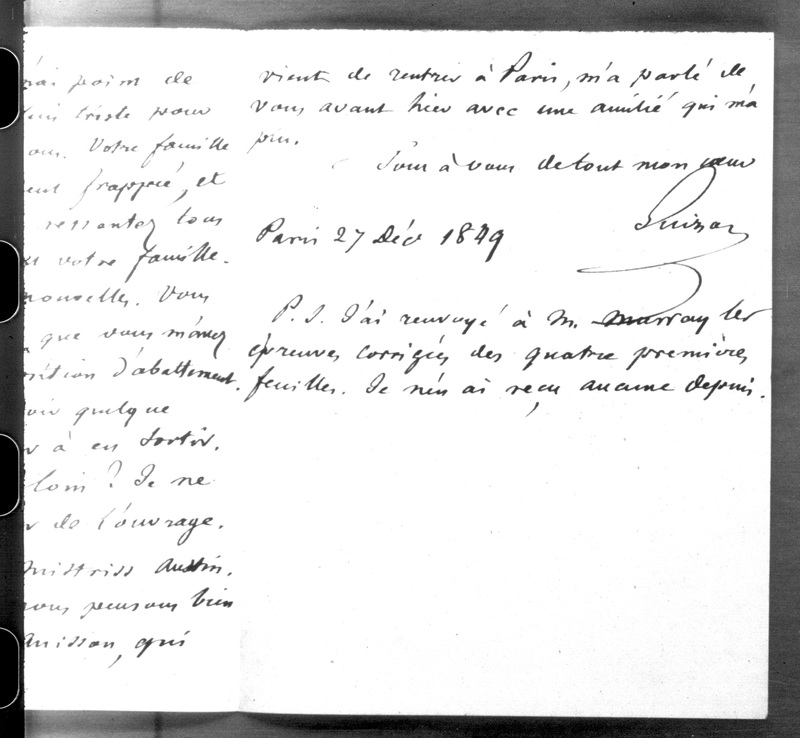 n'ai point de
triste pour
vous. Votre famille
frappée, et
ressentez tous
votre famille.
nouvelles. Vous
que vous m'avez
d'abattement.
quelque
à en sortir.
loin? Je ne
de l'ouvrage.
Mistriss Austin.
nous pensons bien
Anisson, qui
vient de rentrer à Paris, m'a parlé de
vous avant hier avec une amitié qui m'a
plu.
Tout à vous de tout mon cœur
Guizot
Paris 27 Déc 1849
P. S. J'ai renvoyé à M. Murray les
épreuves corrigées des quatre premières
feuilles. Je n'en ai reçu aucune depuis.